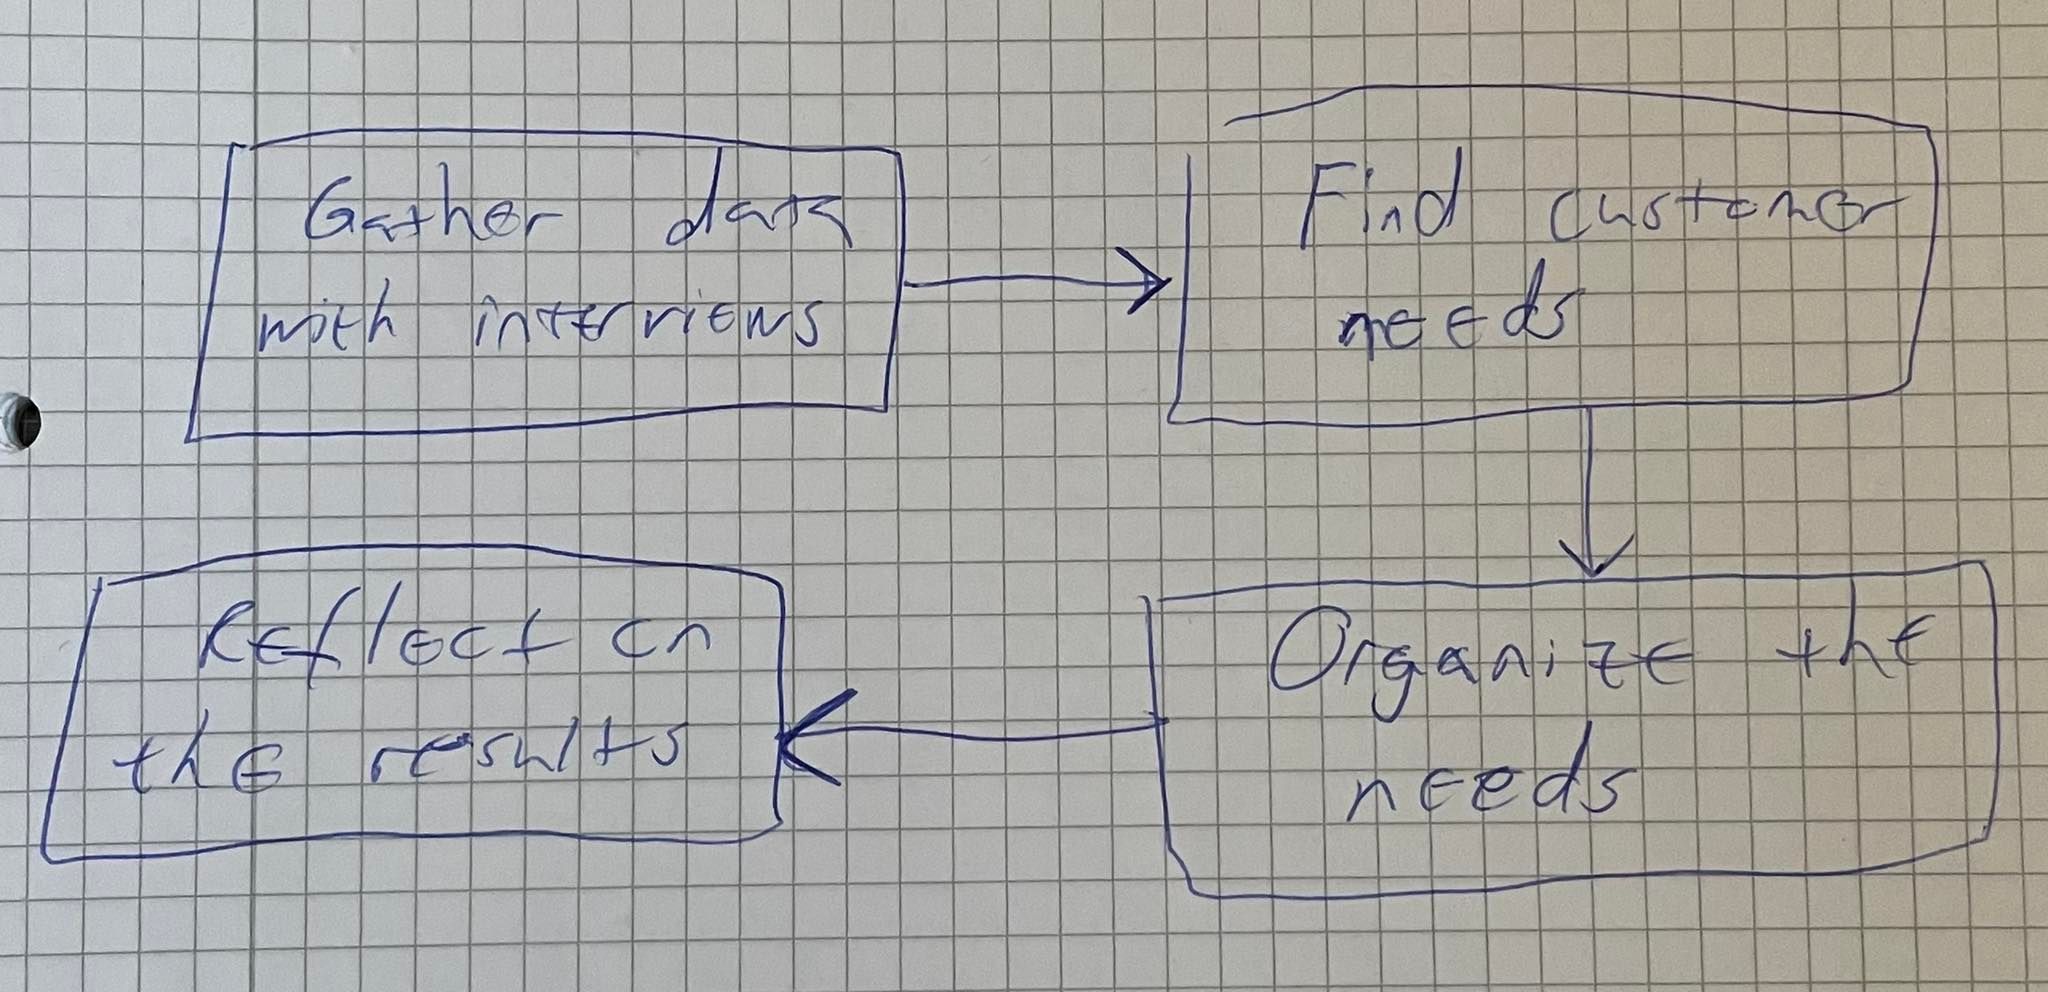 Gather data
with interviews
Find customer
needs
Organize the
needs
Reflect on
the results